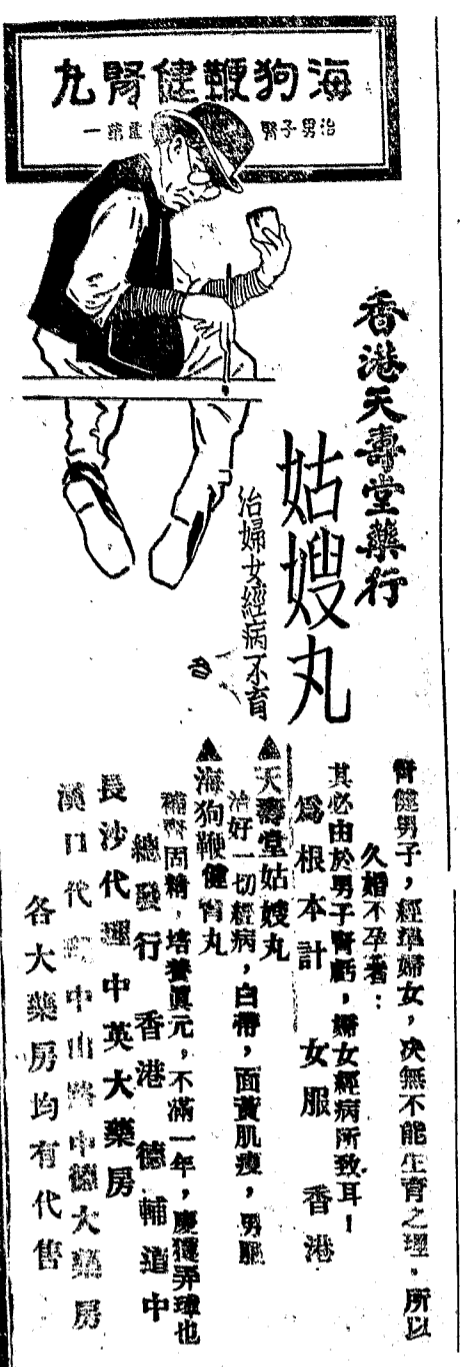 海狗鞭健腎丸
治男子腎 第一
香港天壽堂藥行
姑嫂丸
治婦女經病不育
腎健男子,經準婦女,决無不能生育之理,所以
久婚不孕者:
其必由於男子腎虧,婦女經病所致耳!
爲根本計 女服 香港
▲天壽堂姑嫂丸
治好一切經病,白帶,面黃肌瘦,男服
▲海狗鞭健腎丸
補腎固精,培養眞元,不滿一年,慶獲弄璋也
總發行 香港 德輔道中
長沙代理中英大藥房
漢口代理中山路中德大藥房
各大藥房均有代售